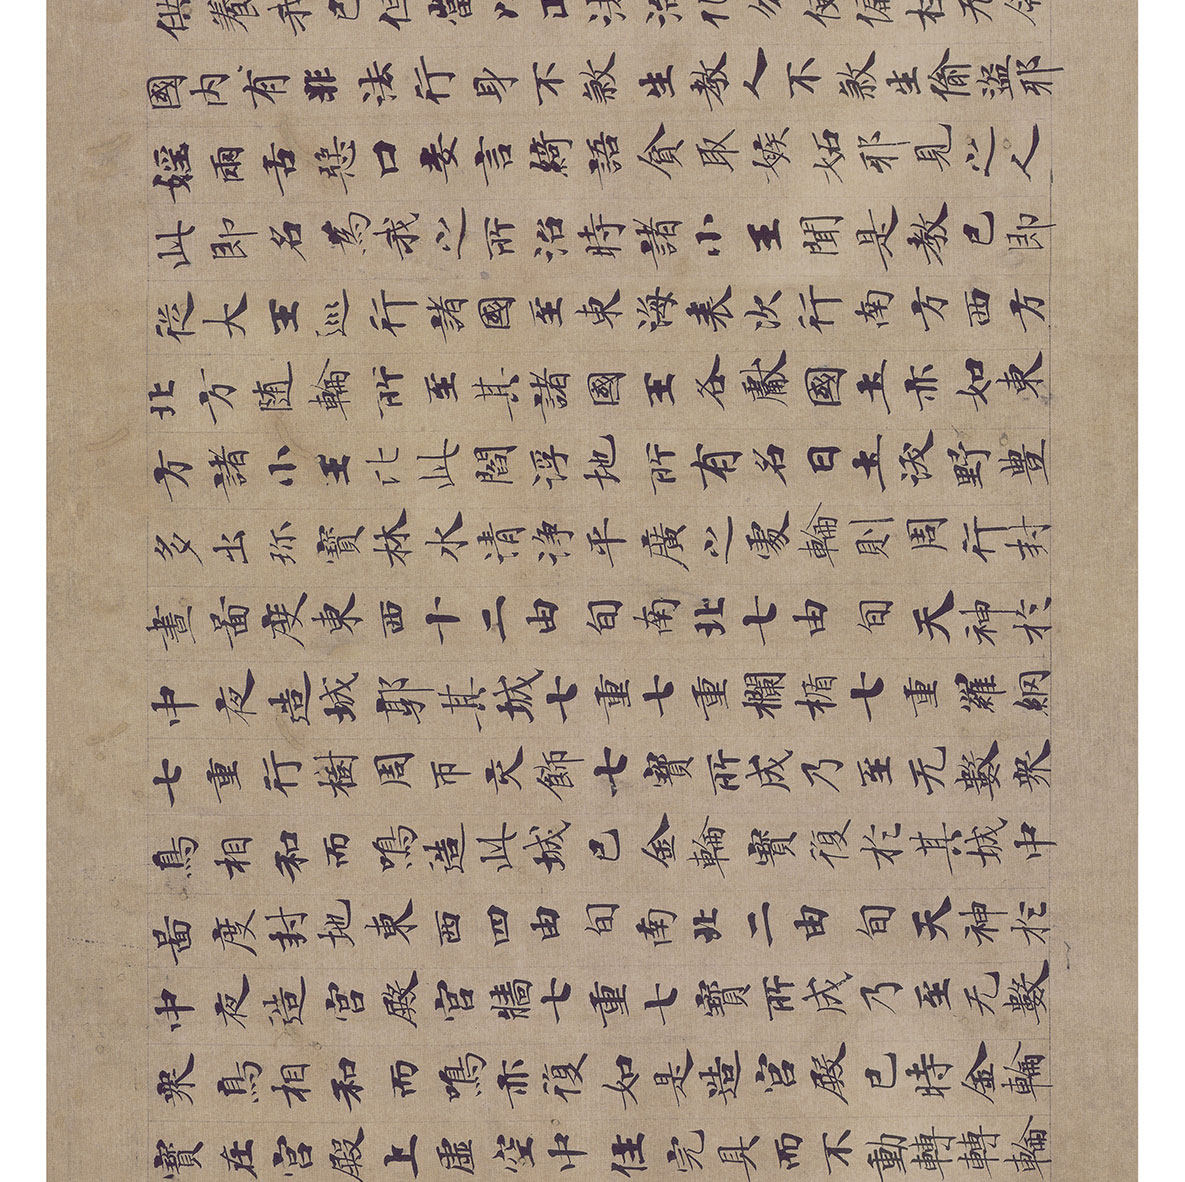 供養我已但當以正法治化勿使偏枉无令
國內有非法行身不煞生教人不煞生偷盜邪
婬兩舌惡口妄言綺語貪取嫉妬邪見之人
此即名為我之所治時諸小王聞是教已即
從大王巡行諸國至東海表次行南方西方
北方随輪所至其諸國王各獻國土亦如東
方諸小王比此閻浮地所有名曰土沃野豊
多出珎寶林水清淨平廣之處輪則周行封
畫啚度東西十二由旬南北七由旬天神於
中夜造城郭其城七重七重欄楯七重羅網
七重行樹周帀交飾七寶所成乃至无數衆
鳥相和而鳴造此城已金輪寶復於其城中
啚度封地東西四由旬南北二由旬天神於
中夜造宮殿宮牆七重七寶所成乃至无數
衆鳥相和而鳴亦復如是造宮殿已時金輪
寶在宮殿上虛空中住完具而不動轉轉輪